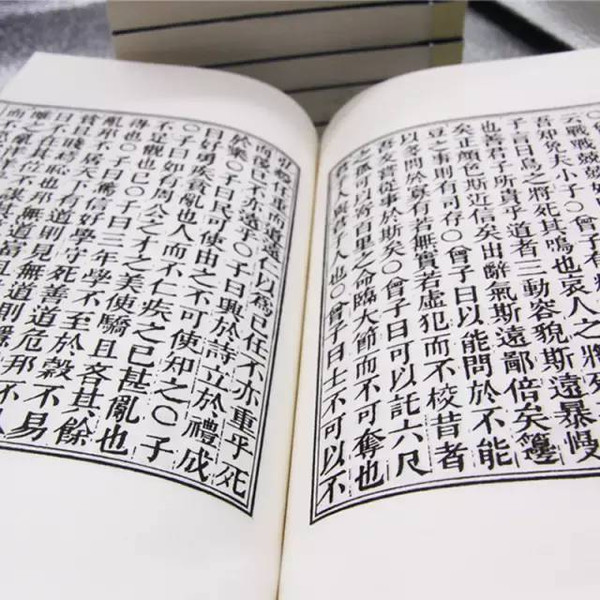 云戰戰兢兢
吾知免夫小子○曾子有疾
子言曰鳥之將死其鳴也哀人之將死
也善君子所貴乎道者三動容貌斯遠暴慢
矣正顏色斯近信矣出辭氣斯遠鄙倍矣籩
豆之事則有司存○曾子曰以能問於不能
以多問於寡有若無實若虛犯而不校昔者
吾友嘗從事於斯矣○曾子曰可以託六尺
之孤可以寄百里之命臨大節而不可奪也
君子人與君子人也○曾子曰士不可以不
弘毅任重而道遠仁以為己任不亦重乎死
而後已不亦遠乎○子曰興於詩立於禮成
於樂○子曰民可使由之不可使知之○子
曰好勇疾貧亂也人而不仁疾之已甚亂也
○子曰如有周公之才之美使驕且吝其餘
不足觀也已○子曰三年學不至於穀不易
得也○子曰篤信好學守死善道危邦不入
亂邦不居天下有道則見無道則隱